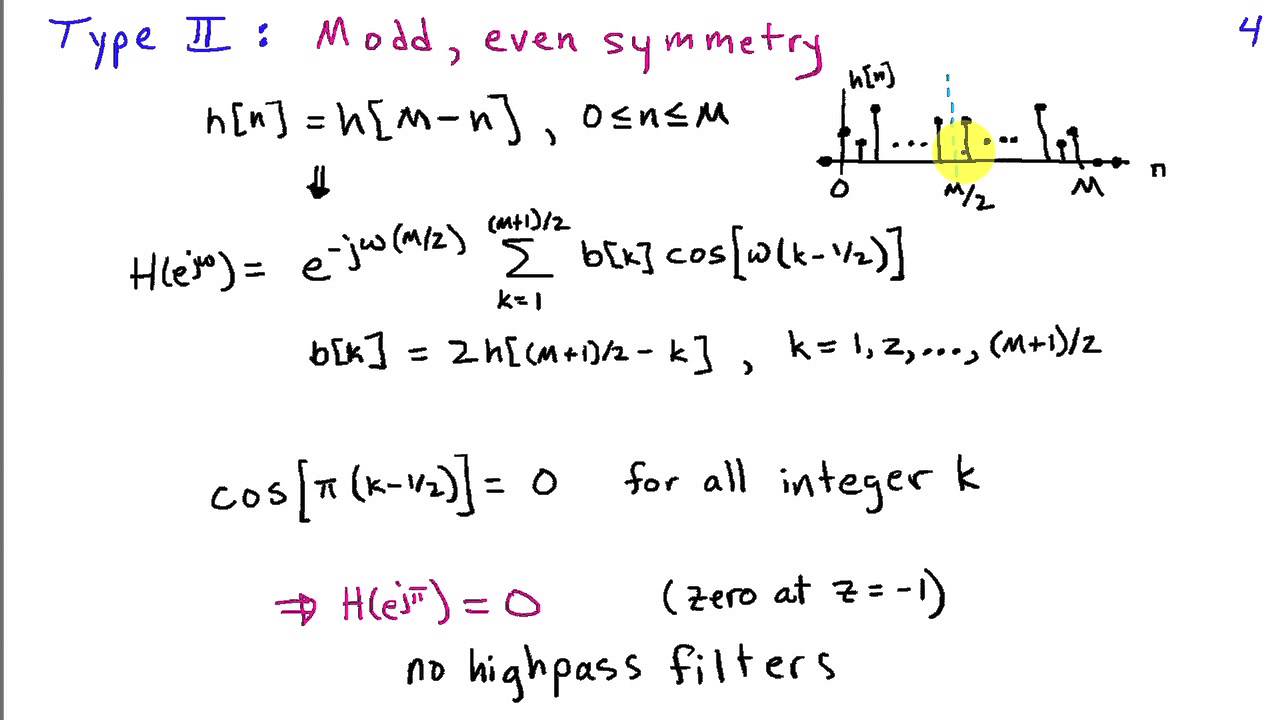 Type II : M odd, even symmetry
4
h[n] = h[M-n] , 0≤n≤M
h[n]
... ...
0 M/2 M n
⇓
H(e^{jω}) = e^{-jω(M/2)} ∑_{k=1}^{(M+1)/2} b[k] cos[ω(k-1/2)]
b[k] = 2h[(M+1)/2 - k] , k = 1, 2, ..., (M+1)/2
cos[π(k-1/2)] = 0 for all integer k
⇒ H(e^{jπ}) = 0 (zero at z = -1)
no highpass filters